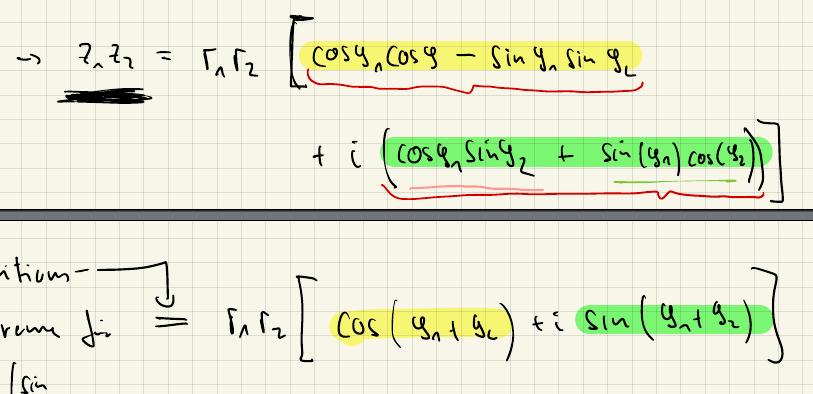 → z₁z₂ = r₁r₂ [cosφ₁cosφ − sinφ₁ sinφ₂
+ i (cosφ₁sinφ₂ + sin(φ₁)cos(φ₂))]
itions-
reme für = r₁r₂ [cos(φ₁+φ₂) + i sin(φ₁+φ₂)]
/sin